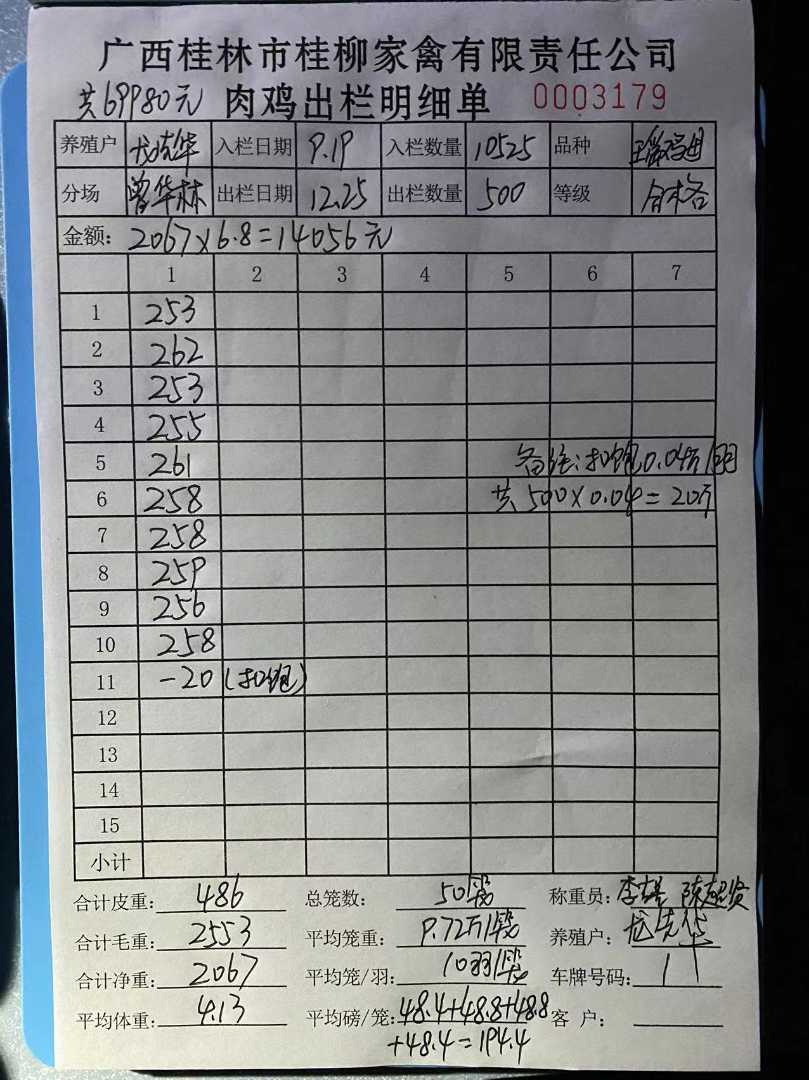 广西桂林市桂柳家禽有限责任公司
共69980元 肉鸡出栏明细单 0003179
养殖户 龙先华 入栏日期 9.19 入栏数量 10525 品种
分场 曾华林 出栏日期 12.25 出栏数量 500 等级 合格
金额: 2067×6.8=14056元
1 2 3 4 5 6 7
1 253
2 262
3 253
4 255
5 261 备注:扣饱0.04斤/羽
6 258 共500×0.04=20斤
7 258
8 259
9 256
10 258
11 -20(扣饱)
12
13
14
15
小计
合计皮重: 486 总笼数: 50 称重员:
合计毛重: 2553 平均笼重: 9.72斤/ 养殖户: 龙先华
合计净重: 2067 平均笼/羽: 10羽/ 车牌号码:
平均体重: 4.13 平均磅/笼: 48.4+48.8+48.8 客 户:
+48.4=194.4